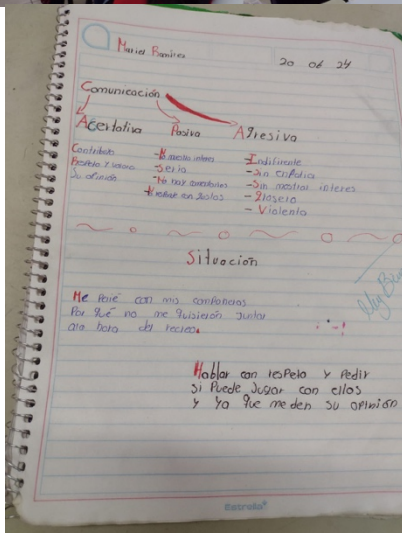 Mariel Ramirez
20 06 24
Comunicación
Acertativa Pasiva Agresiva
Contributo
Respeto y valora
Su opinión
-No muestra interes
-Seria
-No hay comentarios
-No responde con
-Indiferente
-Sin enfatia
-Sin mostrar interes
-Grosera
-Violenta
Situación
Me Pelié con mis compañeros
Por qué no me quisieron Juntar
ala hora del recreo.
Hablar con respeto y Pedir
si Puede Jugar con ellos
y ya que me den su opinión
Estrella